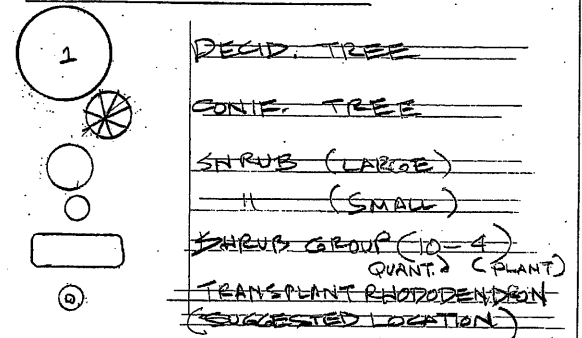 1
DECID. TREE
CONIF. TREE
SHRUB (LARGE)
" (SMALL)
SHRUB GROUP (10-4)
QUANT. (PLANT)
TRANSPLANT RHODODENDRON
(SUGGESTED LOCATION)